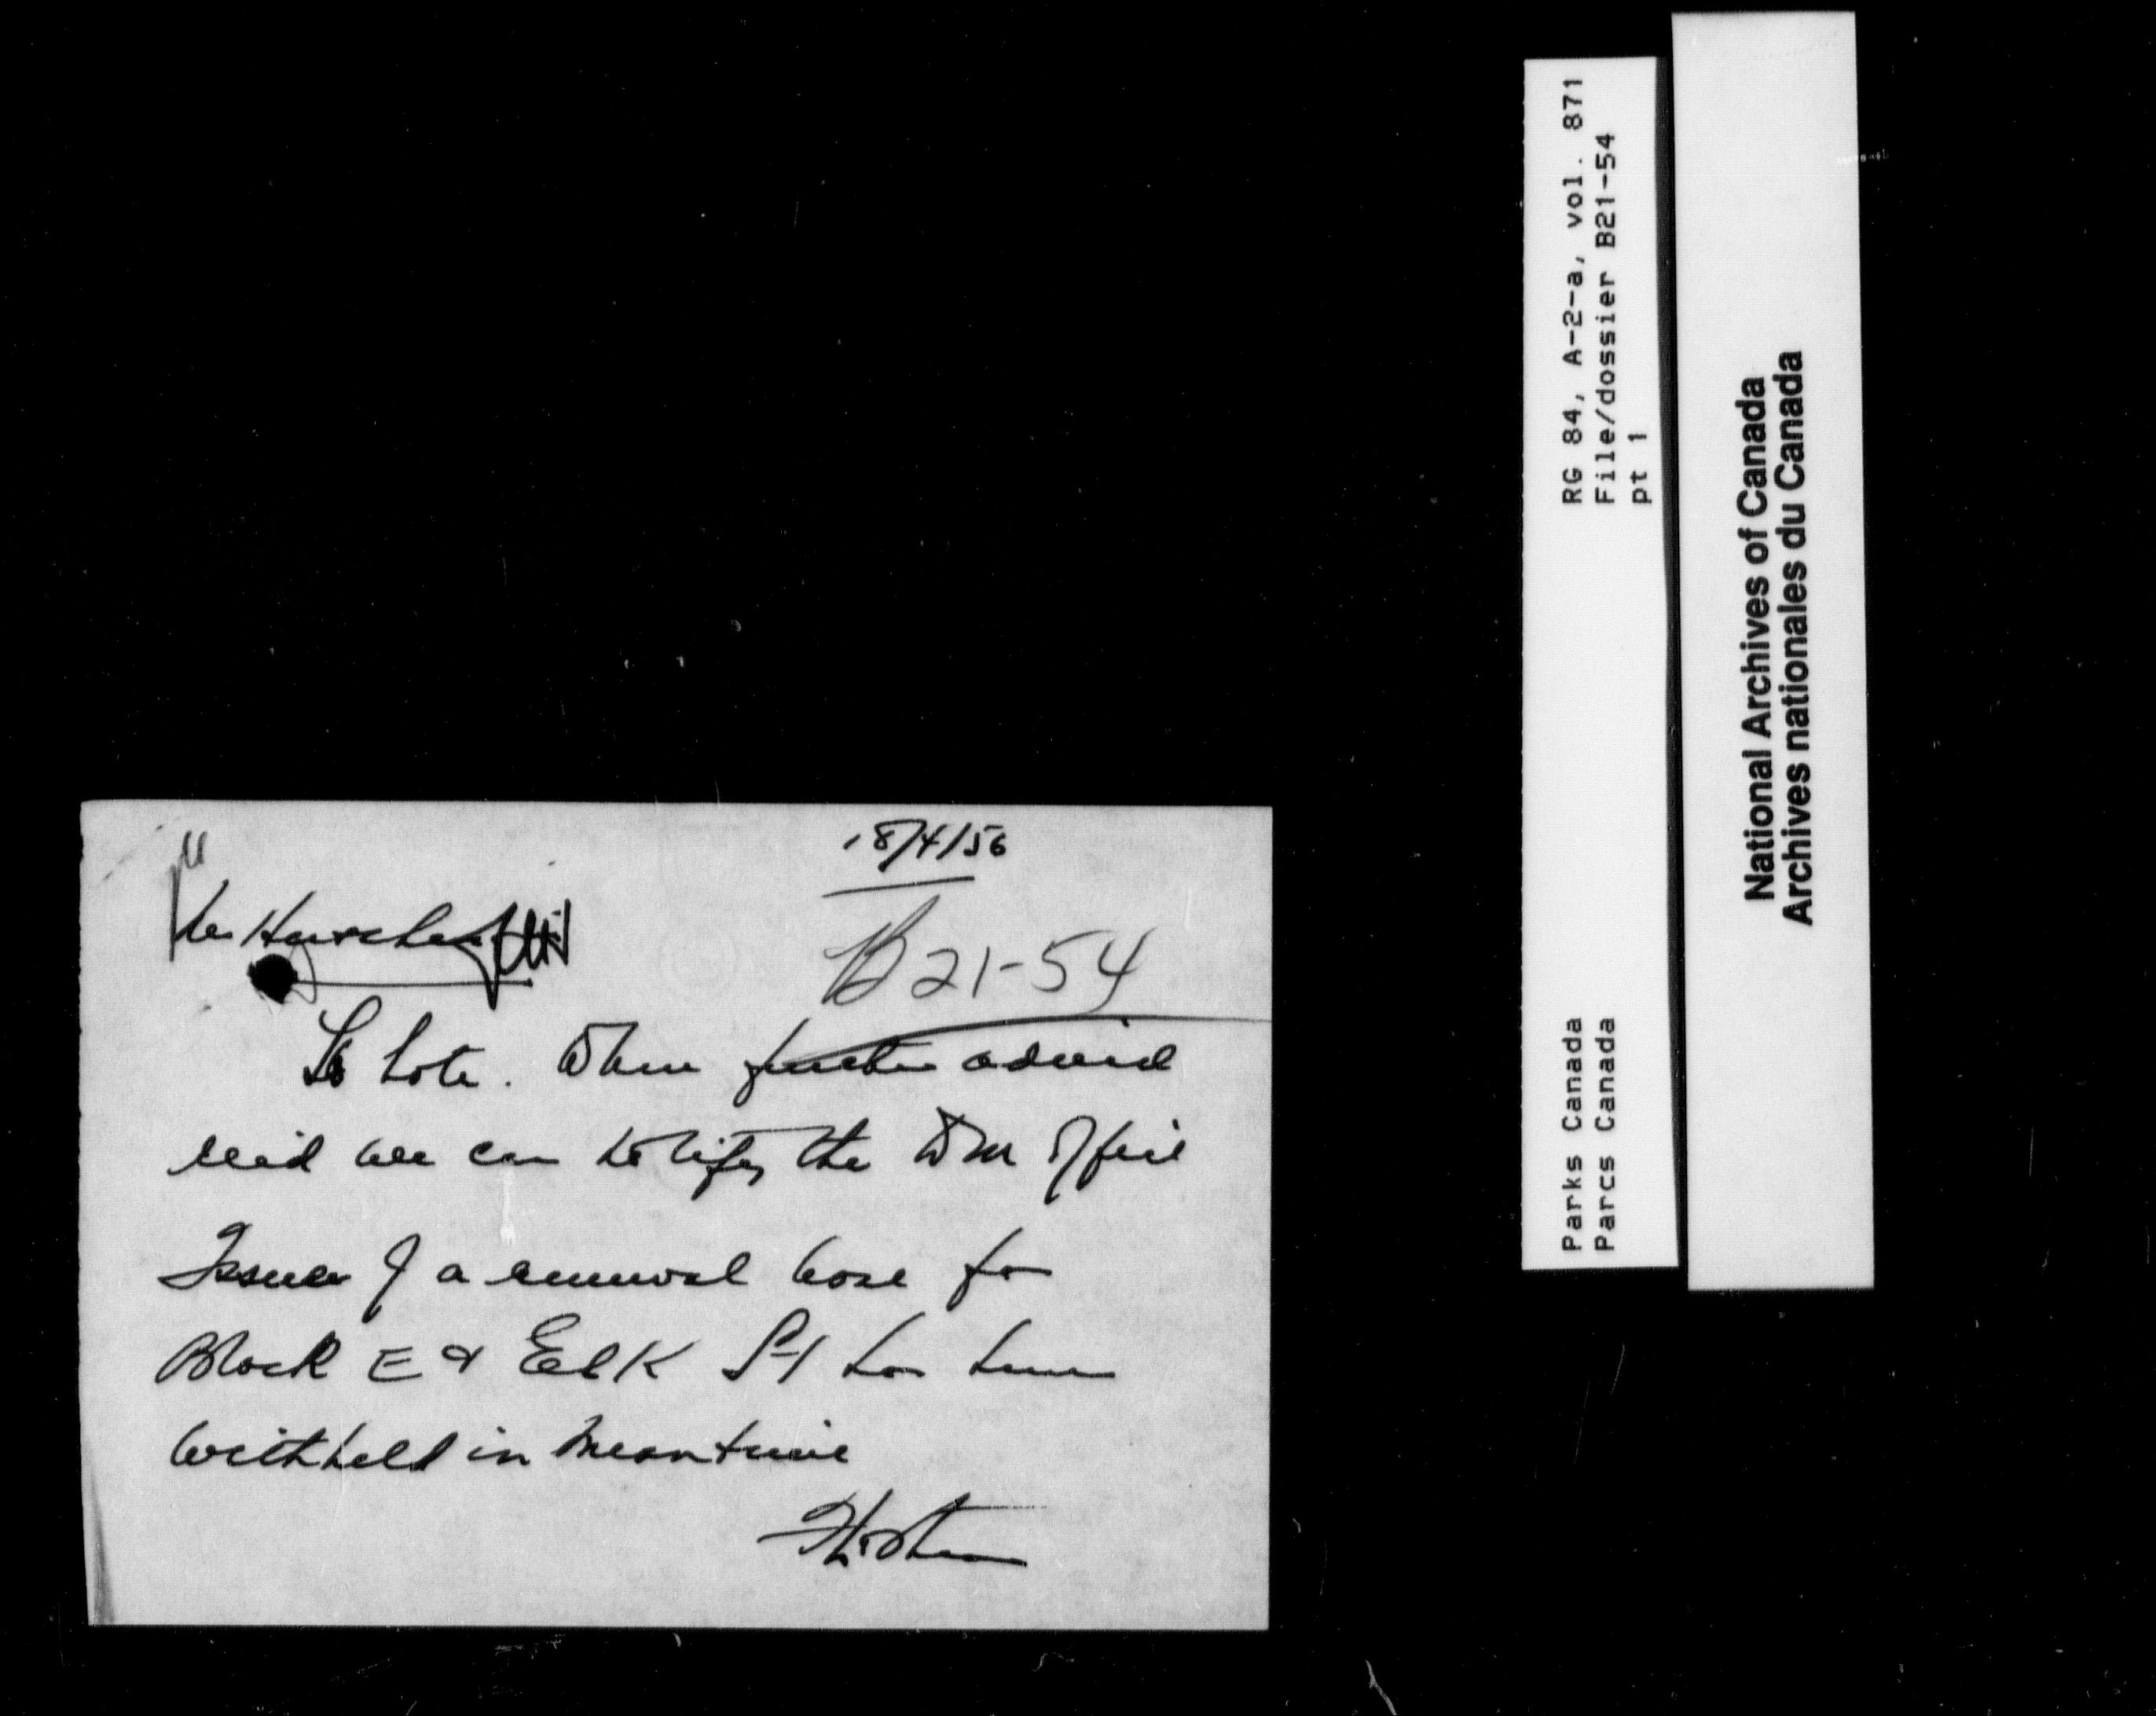 18/4/56
Mr
B21-54
To note. When further advice
rec'd we can notify the Office
Issue of a renewal lease for
Block E & Elk St has been
withheld in meantime
RG 84, A-2-a, vol. 871
File/dossier B21-54
pt 1
Parks Canada
Parcs Canada
National Archives of Canada
Archives nationales du Canada